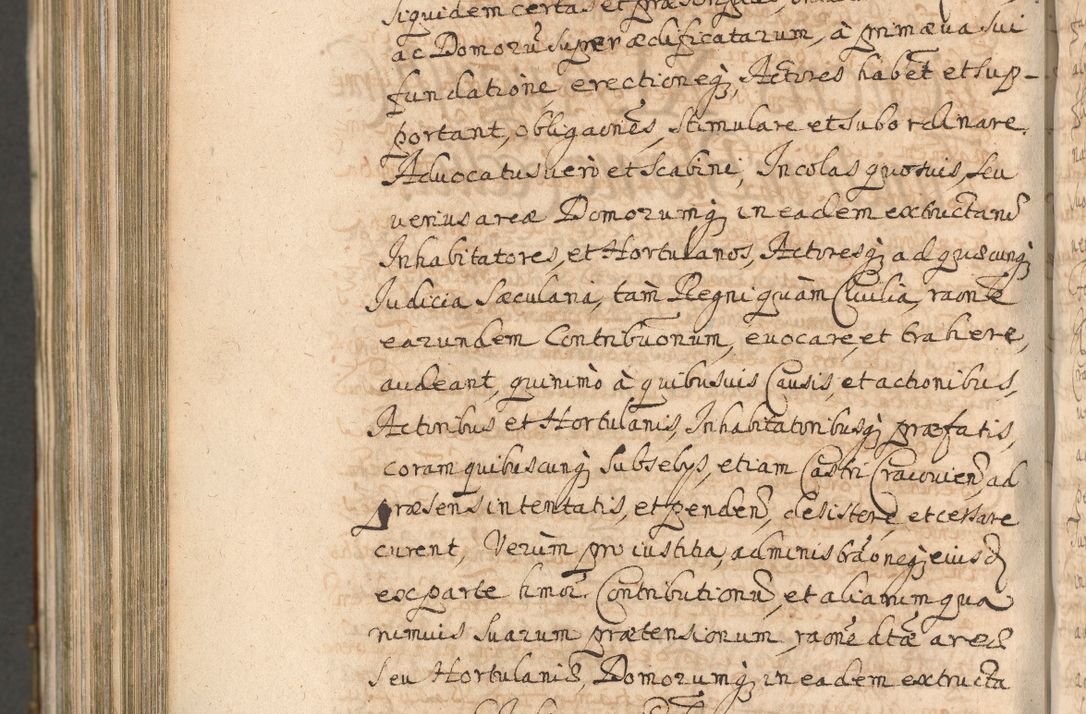 siquidem certas et
ac Domorũ superædificatarum, à primæua sui
fundatiõne erectioneq́; Actores habet̃ et sup-
portant, obligaoñes, stimulare et subordinare.
Aduocatus uerò et scabini, Incolas quosuis, seu
ueriusareæ Domorumq́; in eadem extructarũ
Inhabitatores, et Hortulanos, Actoresq́; ad quæcunq́;
Iudicia Sæcularia, tam̀ Regni quàm Ciuilia, raoñe
earundem Contribuõnum, euocare, et trahere,
audeant, quinimò à quibusuis Causis, et actionibus,
Actoribus et Hortulanis, Inhabitatoribusq́; præfatis,
coram quibuscunq́; Subselijs, etiam Castri Cracouieñ, ad
præsens intentatis, et pendeñ, desistere, et cessare
curent, Verùm pro iustitia, administrãoneq́; eiusd̃
ex parte hmoi. Contributionũ, et aliarum qua
rumuis suarum prætensionum, raoñe dtæ areæ
seu Hortulaniæ, Domorumq́; in eadem extructa